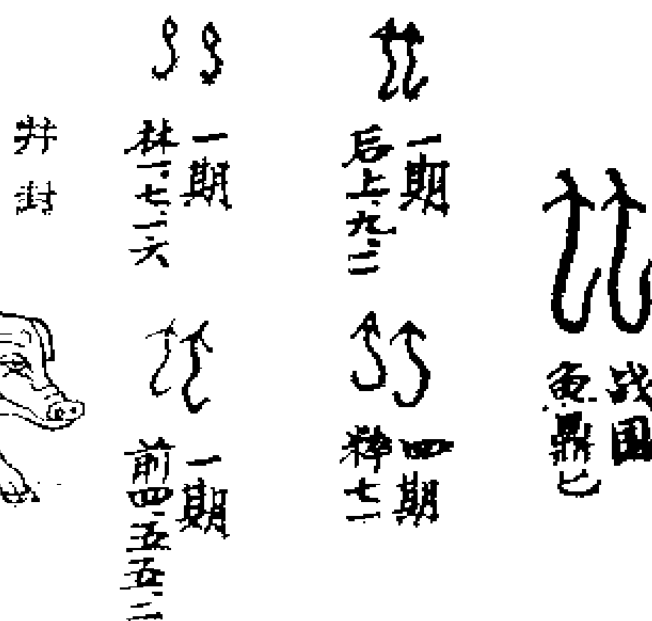 战国
鱼鼎匕
一期
后上.九.二
四期
粹七一
一期
林一.七.一六
一期
前四.五五.二
并封